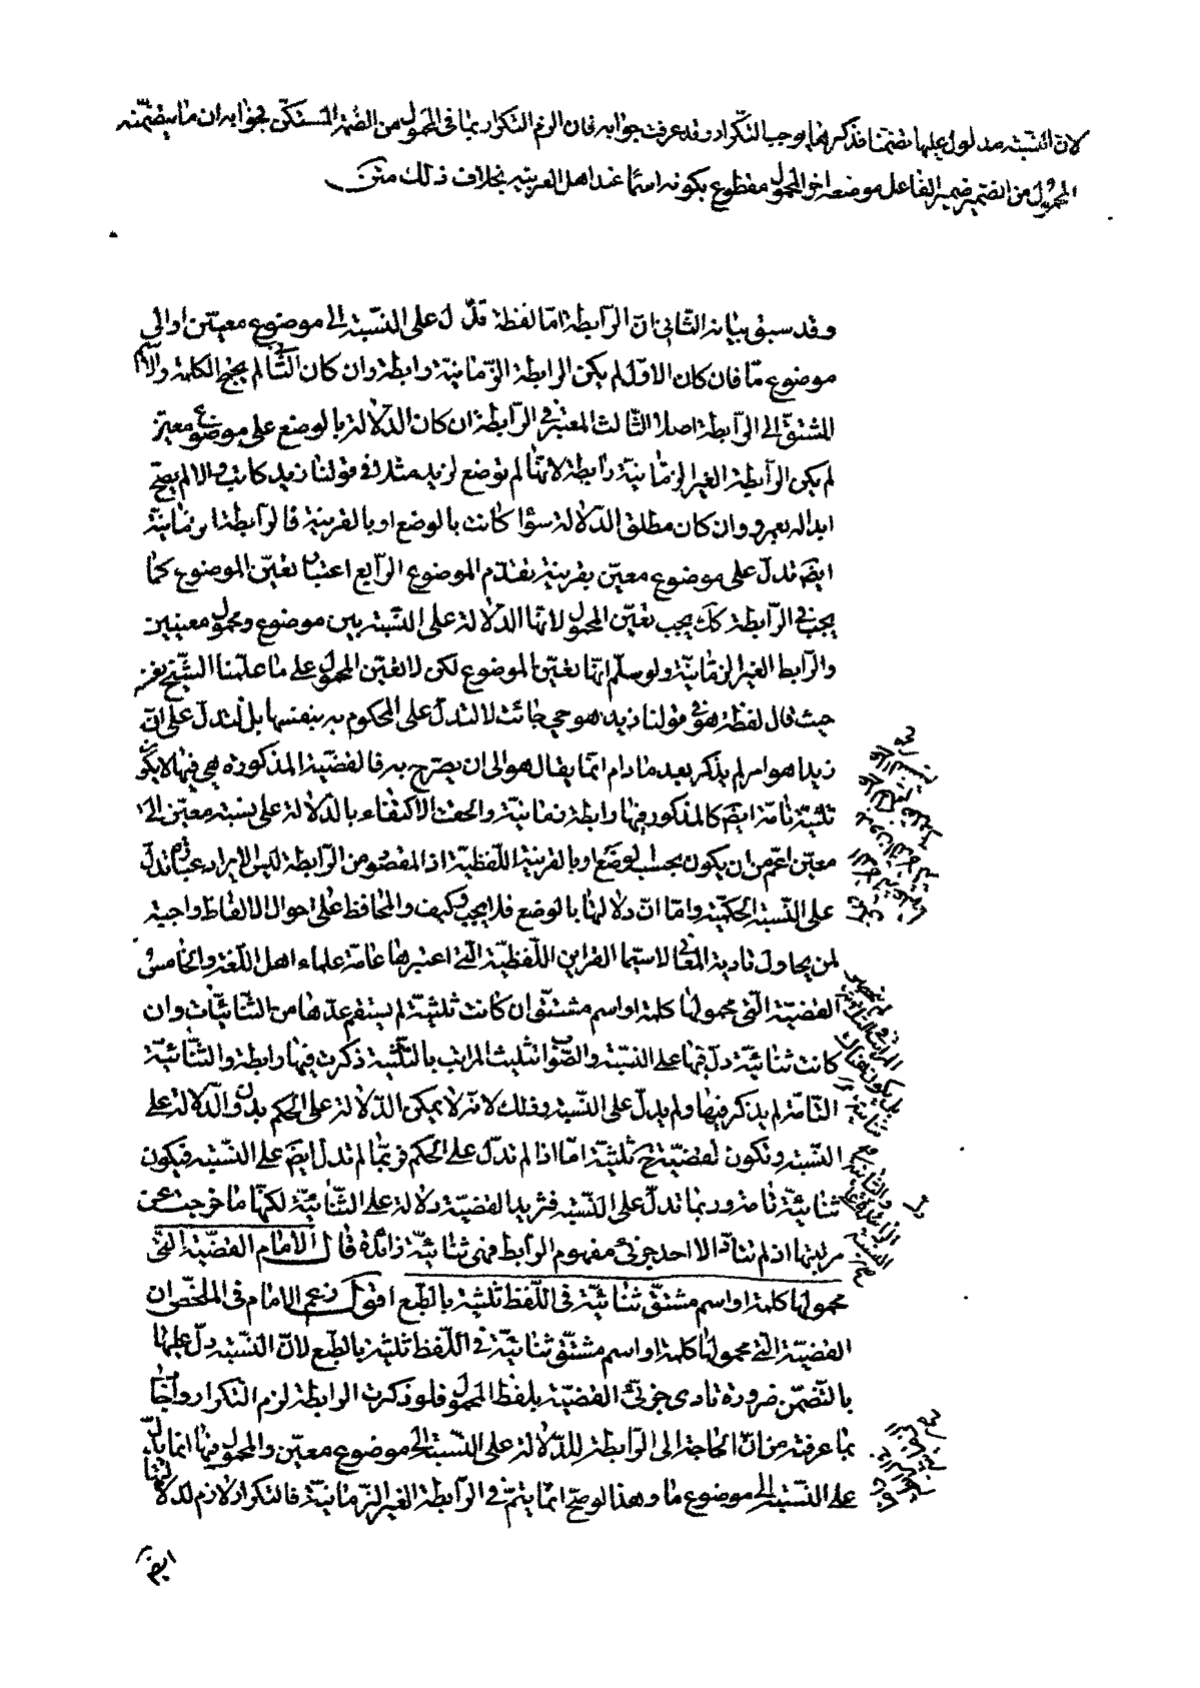 لان النسبة مدلول عليها تضمنا فذكرها يوجب التكرار وقد عرفت جوابه فان الزم التكرار بما فى المحمول من الضمير المستكن فجوابه ان ما يتضمنه
المحمول من الضمير ضمير الفاعل موضعه اخر المحمول مقطوع بكونه اسما عند اهل العربية بخلاف ذلك متن
وقد سبق بيانه الثانى ان الرابطة اما لفظة تدل على النسبة الى موضوع معين او الى
موضوع ما فان كان الاول لم يكن الرابطة الزمانية رابطة وان كان الثانى لم يحتج الكلمة والاسم
المشتق الى الرابطة اصلا الثالث المعتبر فى الرابطة ان كان الدلالة بالوضع على موضوع معين
لم يكن الرابطة الغير الزمانية رابطة لانها لم توضع لزيد مثلا فى قولنا زيد كاتب والا لم يصح
ابداله بعمرو وان كان مطلق الدلالة سواء كانت بالوضع او بالقرينة فالرابطة الزمانية
ايضا تدل على موضوع معين بقرينة تقدم الموضوع الرابع اعتبار تعين الموضوع كما
يجب فى الرابطة كك يجب تعين المحمول لانها الدلالة على النسبة بين موضوع ومحمول معينين
والرابط الغير الزمانية ولو سلم انها تعين الموضوع لكن لا تعين المحمول على ما علمنا الشيخ
حيث قال لفظة هو فى قولنا زيد هو حى جائت لا لتدل على المحكوم به بنفسها بل لتدل على ان
زيدا هو امر لم يذكر بعد ما دام انما يقال هو الى ان يصرح به فالقضية المذكورة هى فيها لا يكون
ثلثية تامة ايضا كالمذكور فيها رابطة زمانية والحق الاكتفاء بالدلالة على نسبة معين الى
معين اعم من ان يكون بحسب الوضع او بالقرينة اللفظية اذ المقصود من الرابطة ليس الا ايراد عبارة تدل
على النسبة الحكمية واما ان دلالتها بالوضع فلا يجب وكيف والمحافظة على احوال الالفاظ واجبة
لمن يحاول تادية المعانى لا سيما القراين اللفظية التى اعتبرها عامة علماء اهل اللغة والخامس
القضية التى محمولها كلمة او اسم مشتق ان كانت ثلثية لم يستقم عدها من الثنائيات وان
كانت ثنائية دل فيها على النسبة والصواب تثليث المراتب بالثلثية ذكرت فيها رابطة والثنائية
التامة لم يذكر فيها ولم يدل على النسبة وذلك لانه لا يمكن الدلالة على الحكم بدون الدلالة على
النسبة وتكون القضية ح ثلثية اما اذا لم تدل على الحكم فربما لم تدل ايضا على النسبة فيكون
ثنائية تامة وربما تدل على النسبة فتزيد القضية دلالة على الثنائية لكنها ما خرجت عن
مرتبتها اذ لم تناد الا احد جزئى مفهوم الرابط فهى ثنائية زائدة قال الامام القضية التى
محمولها كلمة او اسم مشتق ثنائية فى اللفظ ثلثية بالطبع اقول زعم الامام فى الملخص ان
القضية التى محمولها كلمة او اسم مشتق ثنائية فى اللفظ ثلثية بالطبع لان النسبة دل عليها
بالتضمن ضرورة تادى جزئى القضية بلفظ المحمول فلو ذكرت الرابطة لزم التكرار واجاب
بما عرفته من ان الحاجة الى الرابطة للدلالة على النسبة الى موضوع معين والمحمول فيها انما يدل
على النسبة الى موضوع ما وهذا لو صح انما يتم فى الرابطة الغير الزمانية فالتكرار لازم لدلالتها
ايض